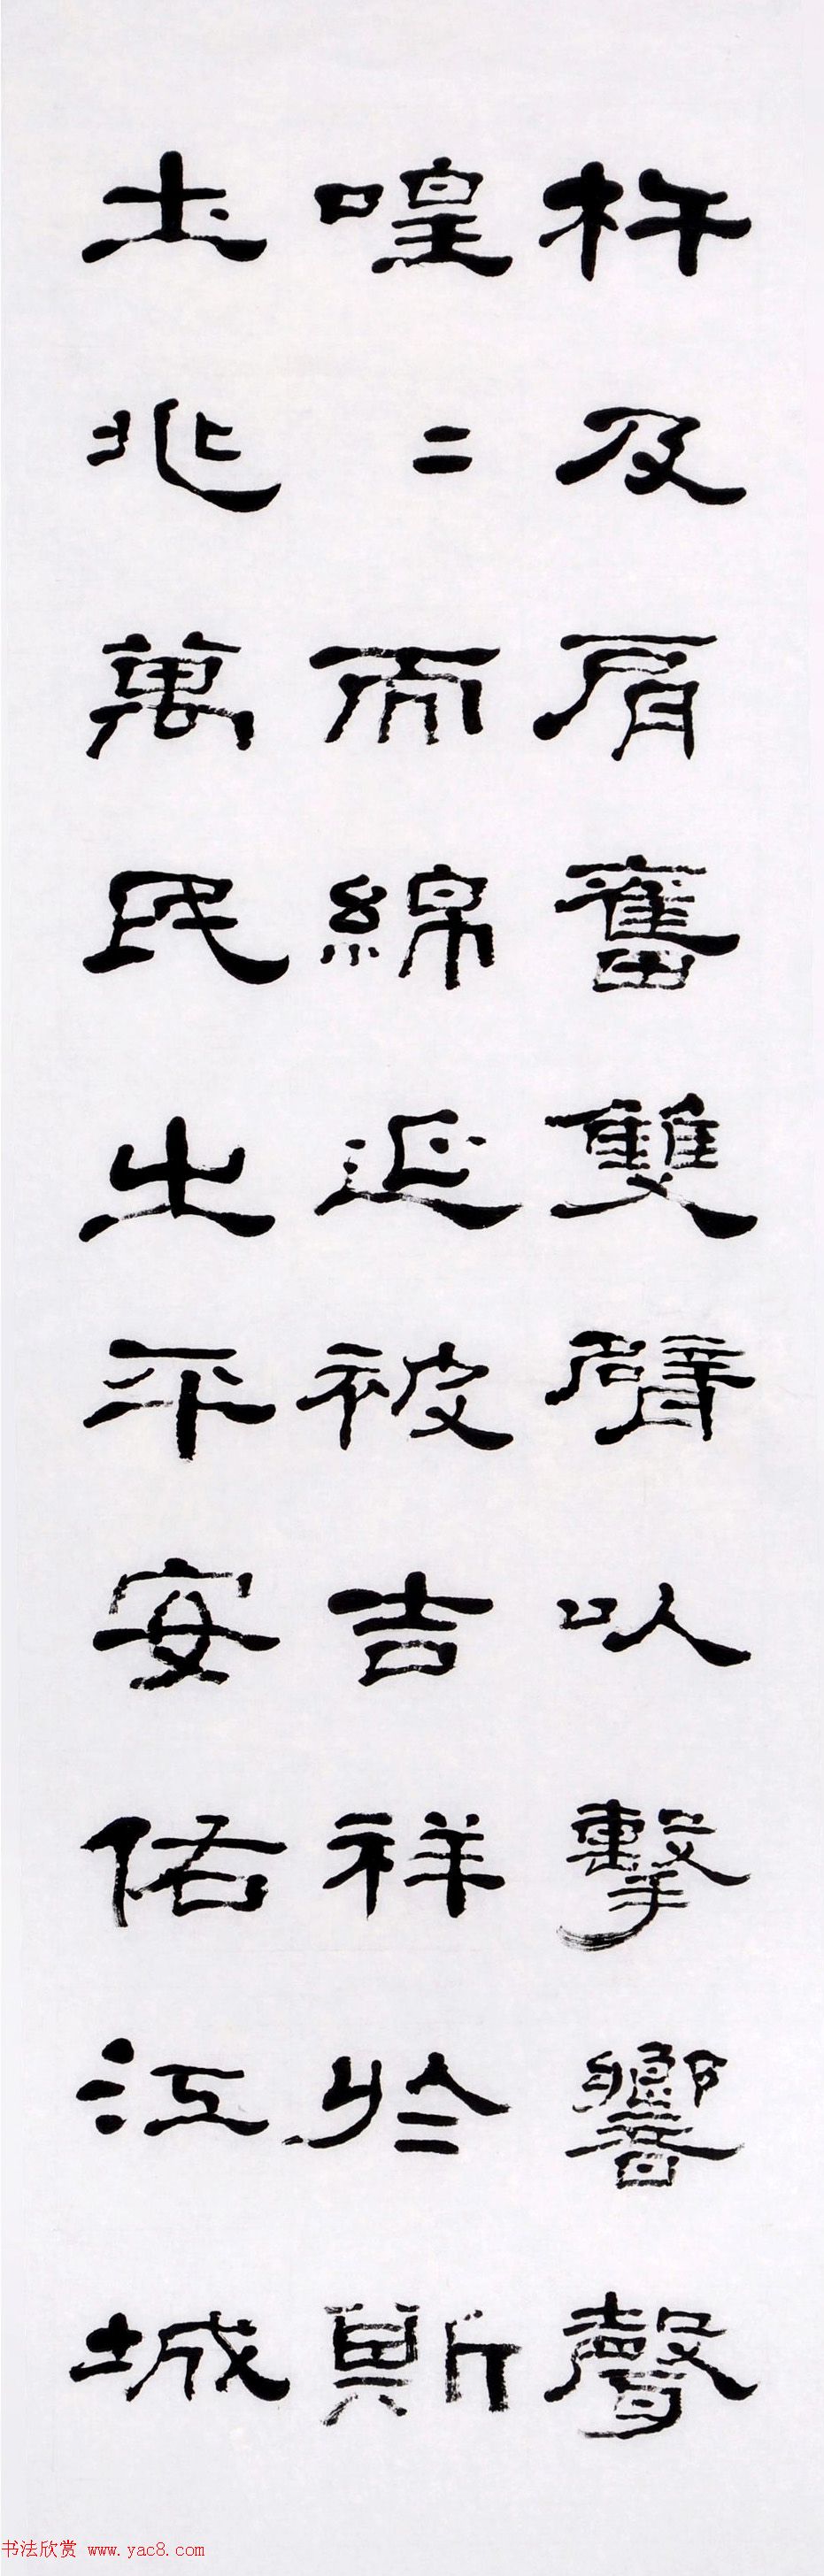 杵及肩奮雙臂以擊響聲
喤〻而綿延被吉祥於斯
土兆萬民之平安佑江城
书法欣赏 www.yac8.com